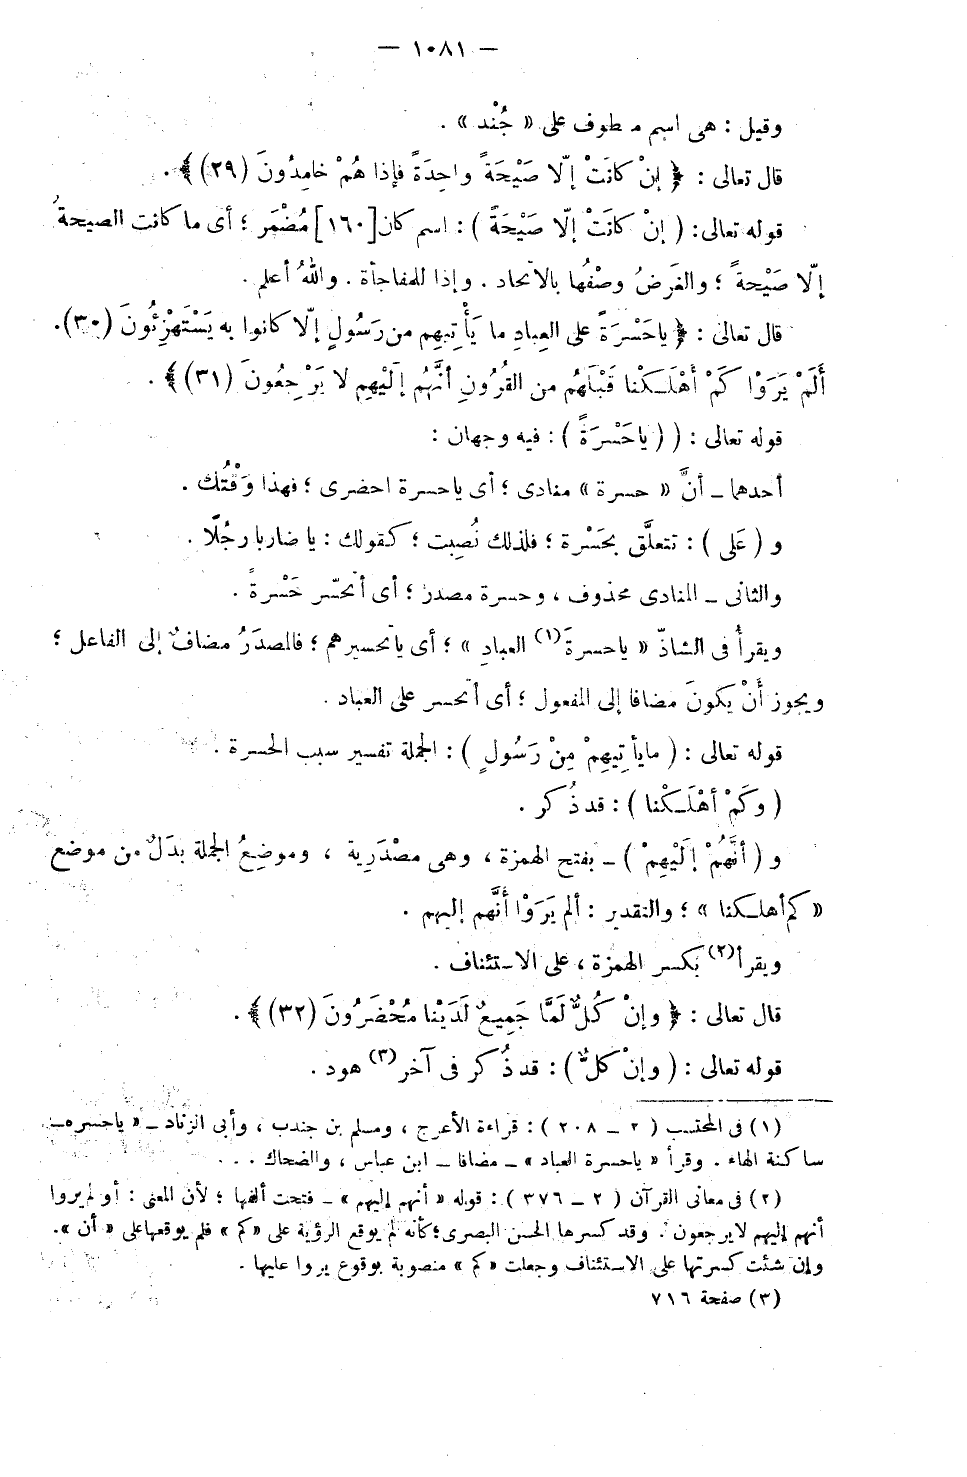 — ١٠٨١ —
وقيل : هى اسم معطوف على « جُنْد » .
قال تعالى : ﴿ إِنْ كانَتْ إلّا صَيْحَةً واحِدَةً فإذا هُمْ خامِدُونَ (٢٩) ﴾ .
قوله تعالى : ( إِنْ كَانَتْ إلّا صَيْحَةً ) : اسم كان [١٦٠] مُضْمَر ؛ أى ما كانت الصيحةُ
إلّا صَيْحةً ؛ والغَرضُ وصْفُها بالاتحاد . وإذا للمفاجأة . واللهُ أعلم .
قال تعالى : ﴿ ياحَسْرَةً على العِبادِ ما يَأْتِيهِم من رَسُولٍ إلّا كانوا به يَسْتَهْزِئُونَ (٣٠) .
أَلَمْ يَرَوْا كَمْ أَهْلَـكْنا قَبْلَهُم من القُرُونِ أنَّهُم إلَيْهِم لا يَرْجِعُونَ (٣١) ﴾ .
قوله تعالى : ( ( ياحَسْرَةً ) : فيه وجهان :
أحدهما ـ أنَّ « حسرة » منادى ؛ أى ياحسرة احضرى ؛ فهذا وَقْتُك .
و ( عَلى ) : تتعلَّق بحَسْرة ؛ فلذلك نُصِبت ؛ كقولك : يا ضاربا رجُلًا .
والثانى ـ المنادى محذوف ، وحسرة مصدر ؛ أى أتحسّر حَسْرةً .
ويقرأُ فى الشاذّ « ياحسرةَ (١) العبادِ » ؛ أى ياتحسيرهم ؛ فالمصدَرُ مضافٌ إلى الفاعل ؛
ويجوز أَنْ يكونَ مضافا إلى المفعول ؛ أى أتحسر على العباد .
قوله تعالى : ( مايأتِيهِمْ مِنْ رَسُولٍ ) : الجملة تفسير سبب الحسرة .
( وكَمْ أهْلَـكْنا ) : قد ذُكر .
و ( أنَّهُمْ إلَيْهِمْ ) ـ بفتح الهمزة ، وهى مصْدَرية ، وموضِعُ الجملة بدَلٌ من موضع
« كم أهلـكنا » ؛ والتقدير : ألم يَرَوْا أنَّهم إليهم .
ويقرأ (٢) بكسر الهمزة ، على الاستئناف .
قال تعالى : ﴿ وإنْ كُلٌّ لَمَّا جَمِيعٌ لَدَيْنا مُحْضَرُونَ (٣٢) ﴾ .
قوله تعالى : ( وإنْ كلٌّ ) : قد ذُكر فى آخر (٣) هود .
(١) فى المحتسب ( ٢ ـ ٢٠٨ ) : قراءة الأعرج ، ومسلم بن جندب ، وأبى الزناد ـ « ياحسره ـ
ساكنة الهاء . وقرأ « ياحسرة العباد » ـ مضافا ـ ابن عباس ، والضحاك . . .
(٢) فى معانى القرآن ( ٢ ـ ٣٧٦ ) : قوله « أنهم إليهم » ـ فتحت ألفها ؛ لأن المعنى : أو لم يروا
أنهم إليهم لايرجعون . وقد كسرها الحسن البصرى ؛ كأنه لم يوقع الرؤية على « كم » فلم يوقعها على « أن » .
وإن شئت كسرتها على الاستئناف وجعلت « كم » منصوبة بوقوع يروا عليها .
(٣) صفحة ٧١٦